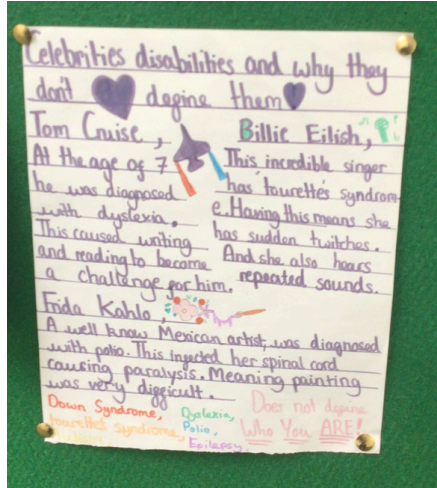 Celebrities disabilities and why they
don't define them
Tom Cruise,
At the age of 7
he was diagnosed
with dyslexia.
This caused writing
and reading to become
a challenge for him.
Billie Eilish,
This incredible singer
has tourette's syndrom-
e. Having this means she
has sudden twitches.
And she also hears
repeated sounds.
Frida Kahlo,
A well know Mexican artist, was diagnosed
with polio. This injected her spinal cord
causing paralysis. Meaning painting
was very difficult.
Down Syndrome,
tourettes syndrome,
Dyslexia,
Polio,
Epilepsy
Does not define
Who You ARE!